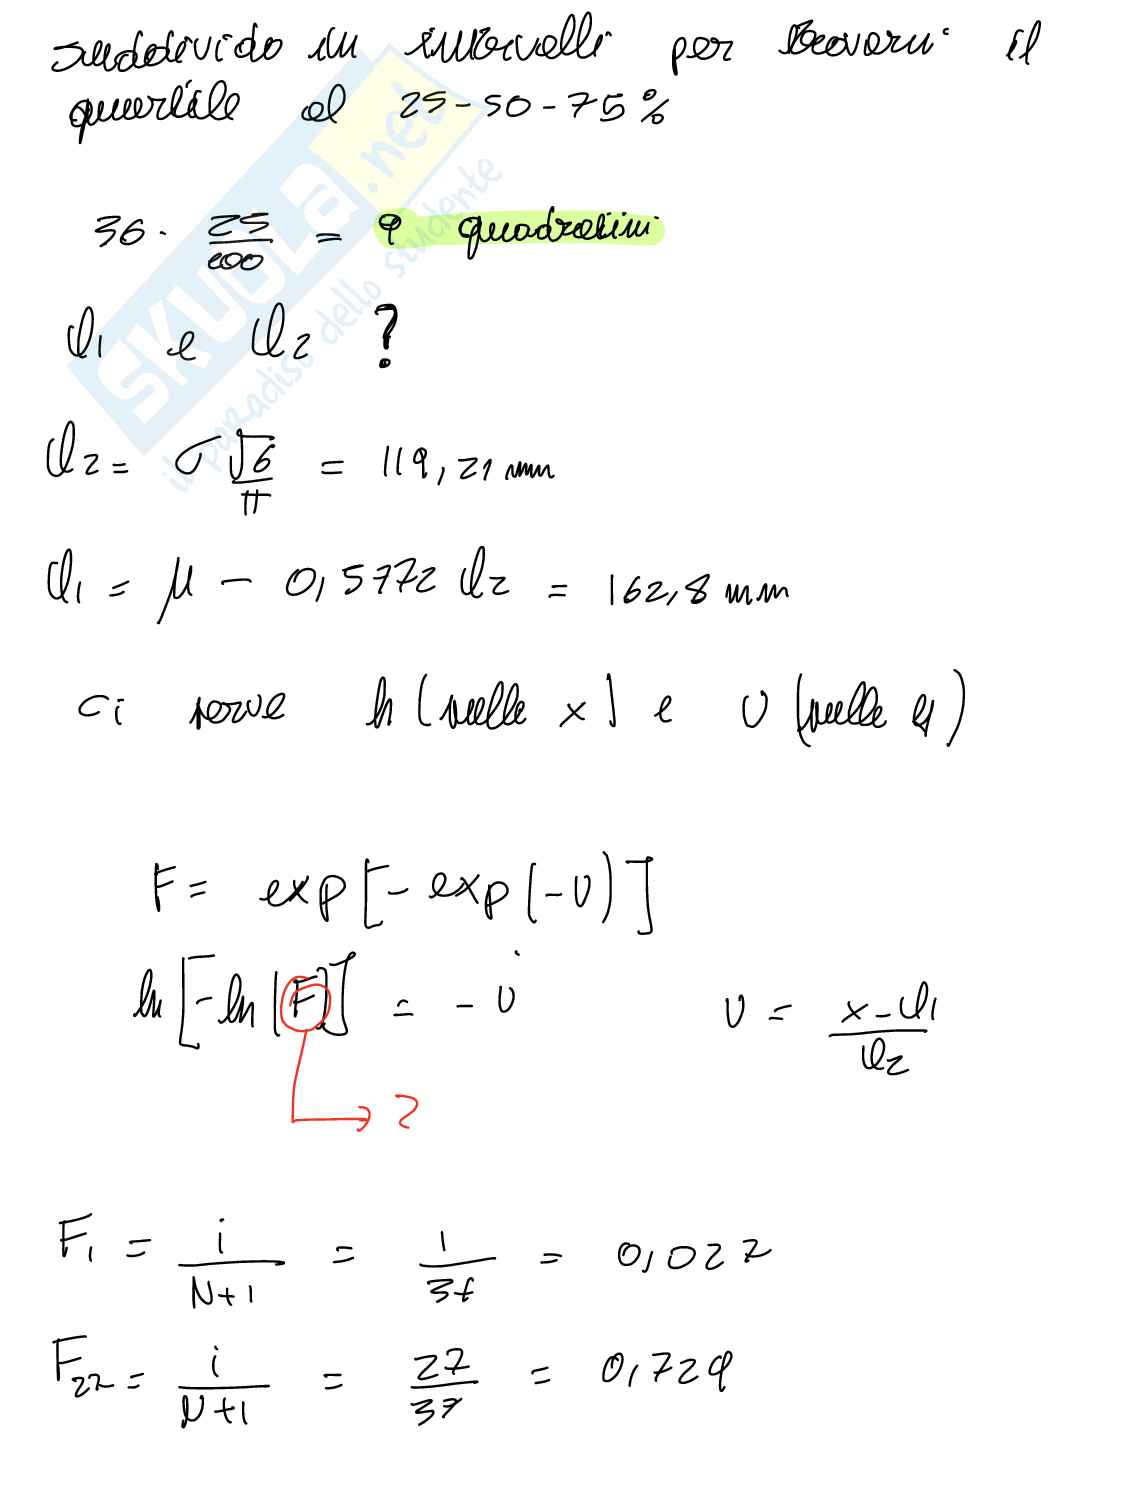 suddivido in intervalli per trovarmi il
quartile al 25-50-75%
36 · 25/100 = 9 quadratini
θ1 e θ2 ?
θ2 = σ√6/π = 119,21 mm
θ1 = μ - 0,5772 θ2 = 162,8 mm
ci serve h (nelle x) e υ (nelle y)
F = exp[-exp(-υ)]
ln[-ln(F)] = -υ
υ = (x-θ1)/θ2
→ ?
F1 = i/(N+1) = 1/37 = 0,027
F27 = i/(N+1) = 27/37 = 0,729
SKUOLA.net
il paradiso dello studente